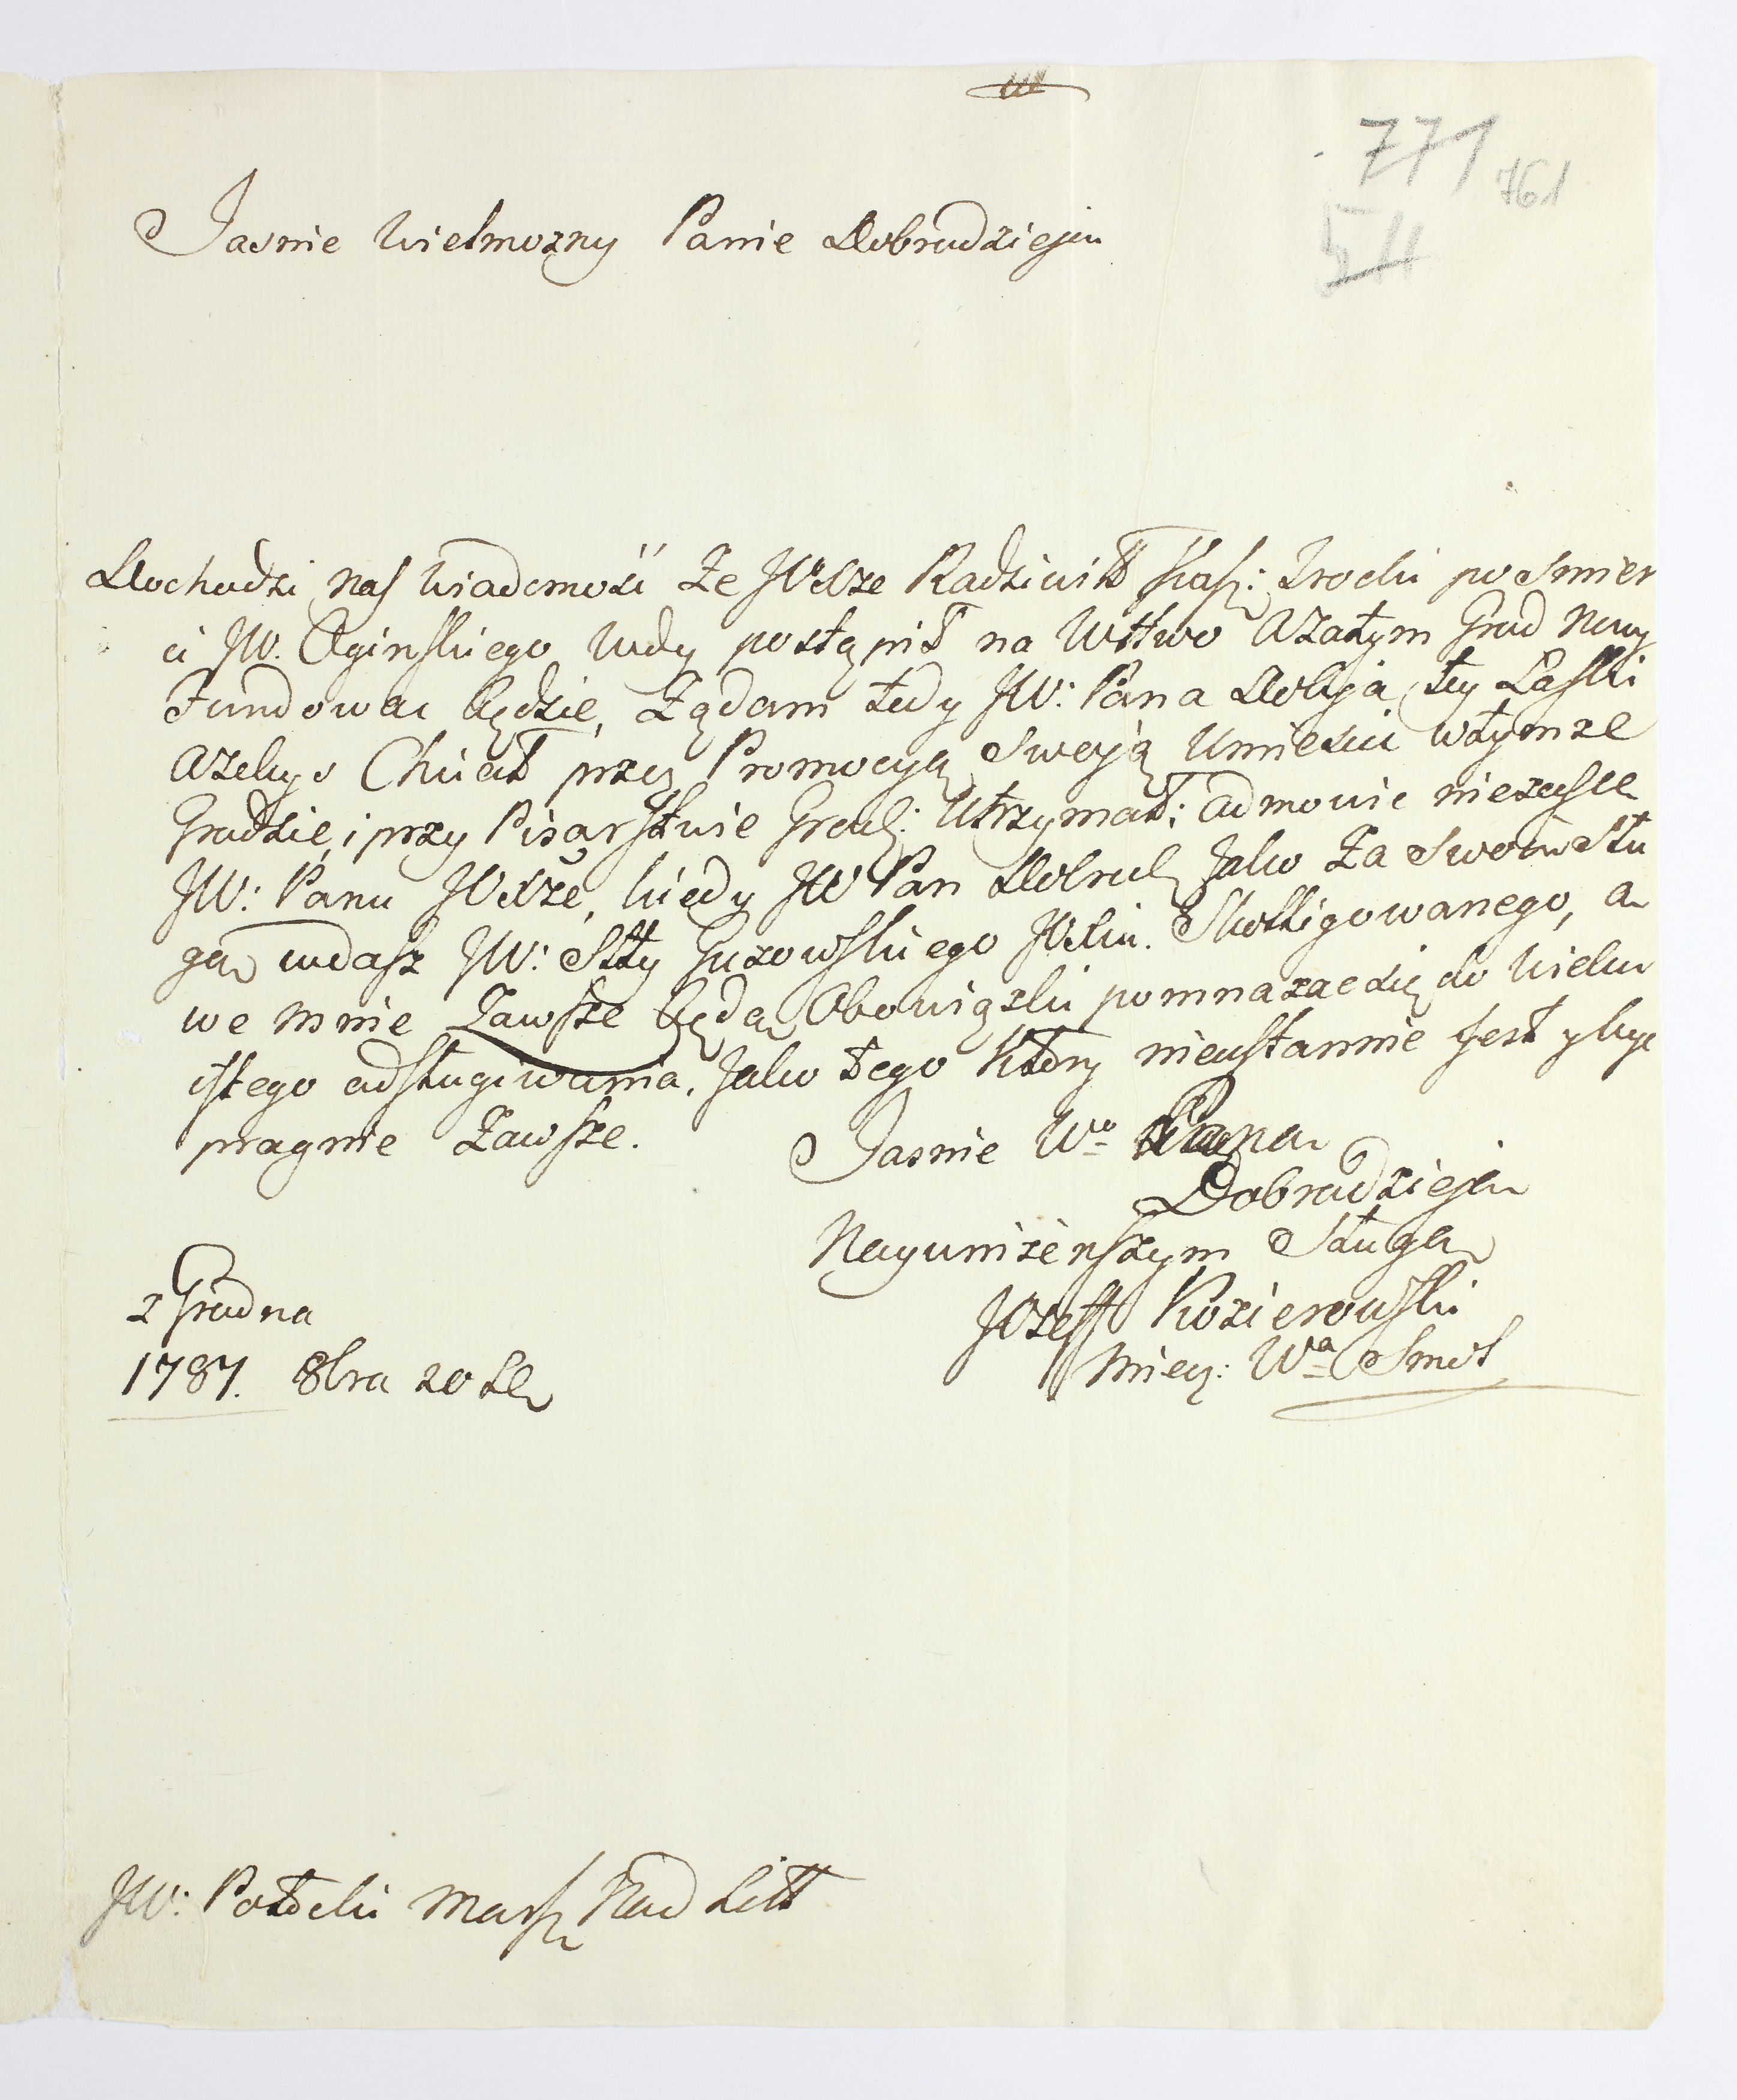 771
761
Jasnie Wielmozny Panie Dobrodzieju
Dochodzi nas Wiadomość Ze JOXże Radziwiłł Kasz: Trocki po Smier
ci JW. Oginskiego Wdy postąpił na Wttwo Azatym Grod Nowy
Fundować będzie, Ządam tedy JW: Pana Dobja tey Łaski
Azebyś Chciał przez Promocyą Swoją Umieścić wtymze
Grodzie, i przy Pisarstwie Grodz: Utrzymał; Odmowić niezechce
JW: Panu JOXże, kiedy JW Pan Dobrodz Jako Za Swoim Słu
gą wdasz JW: Stty Guzowskiego JOXciu. Skolligowanego, a
we mnie Zawsze będą Obowiązki pomnazać się do Wieku
istego odsługiwania. Jako tego Ktory nieustannie jest y być
pragnie Zawsze.
Jasnie Wo Pana
Dobrodzieja
Nayunizenszym Sługą
Jozeff Kozierowski
Miecz: Wa Smol
z Grodna
1787. 8bra 20 Da
JW: Potocki Marsz Nad Litt